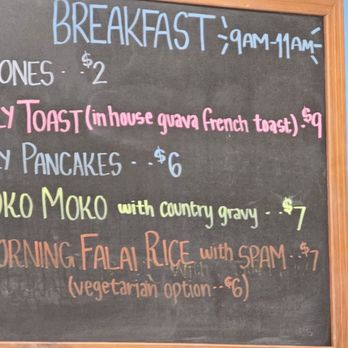 BREAKFAST 9AM-11AM
ONES .. $2
LY TOAST (in house guava french toast) . $9
Y PANCAKES - .. $6
OKO MOKO with country gravy .. $7
ORNING FALAI RICE with SPAM .. $7
(vegetarian option .. $6)